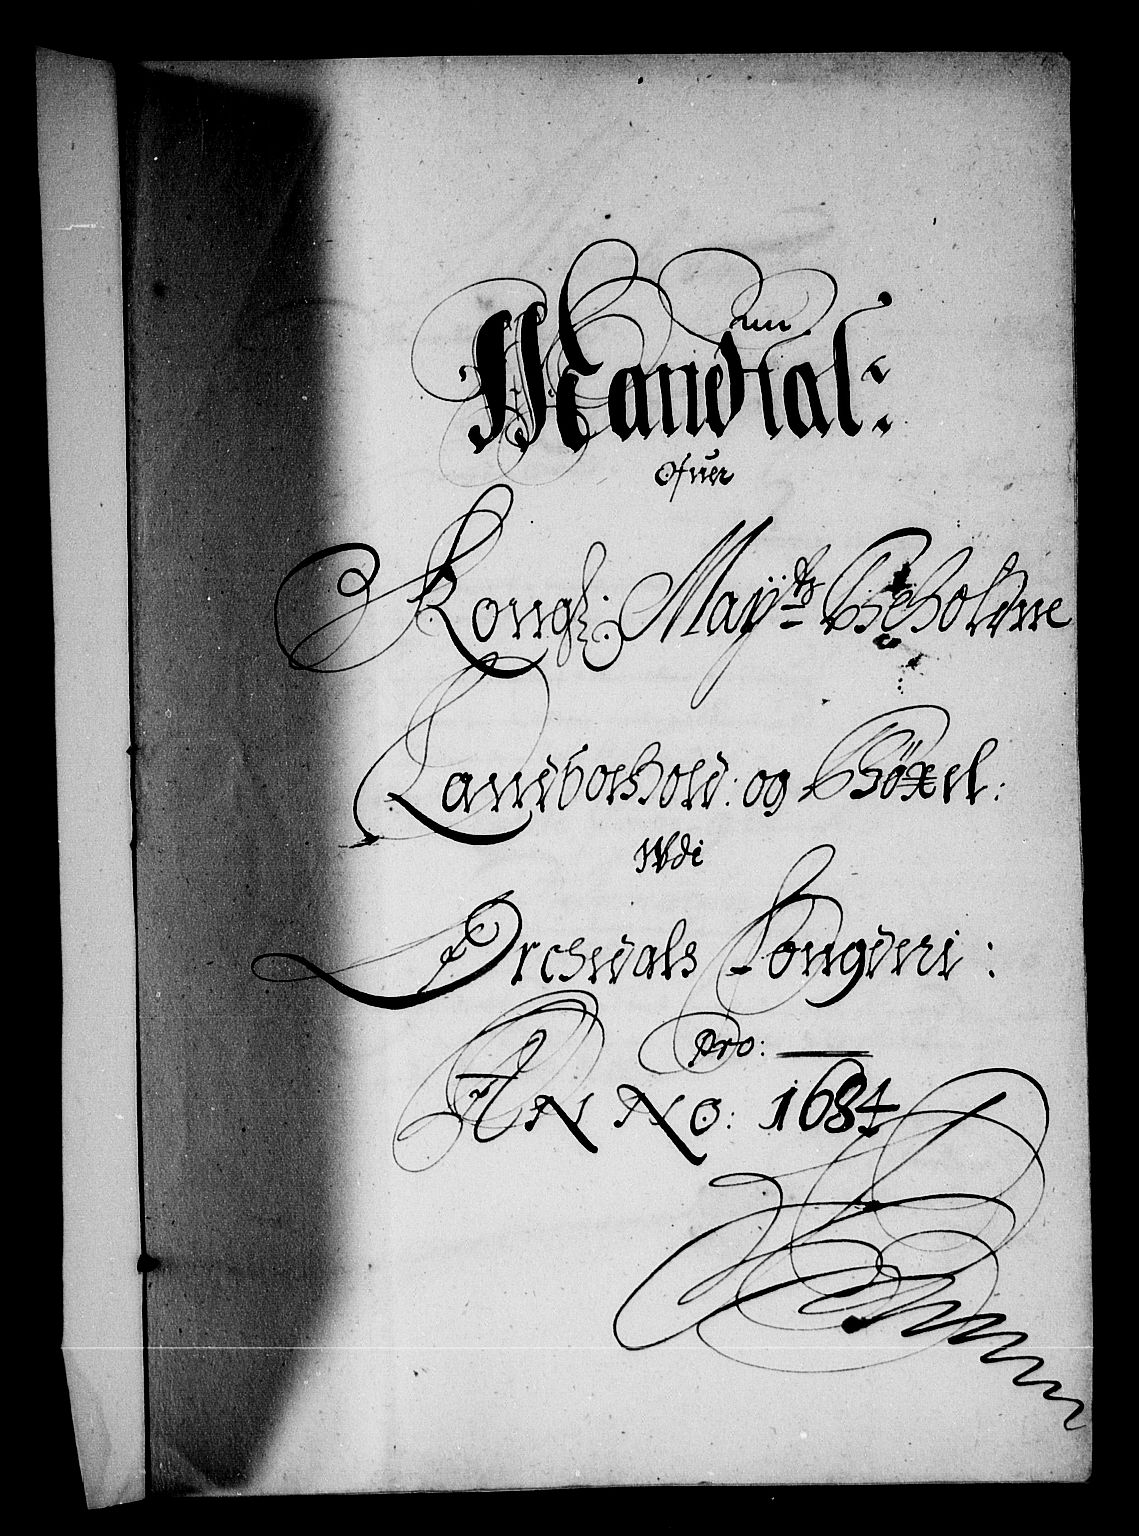 Mandtal:
ofver
Kongl: Mayts Beholdne
Landbohold: og Böxel:
Udi
Orchdals Fougderi:
pro:
ANNO: 1684